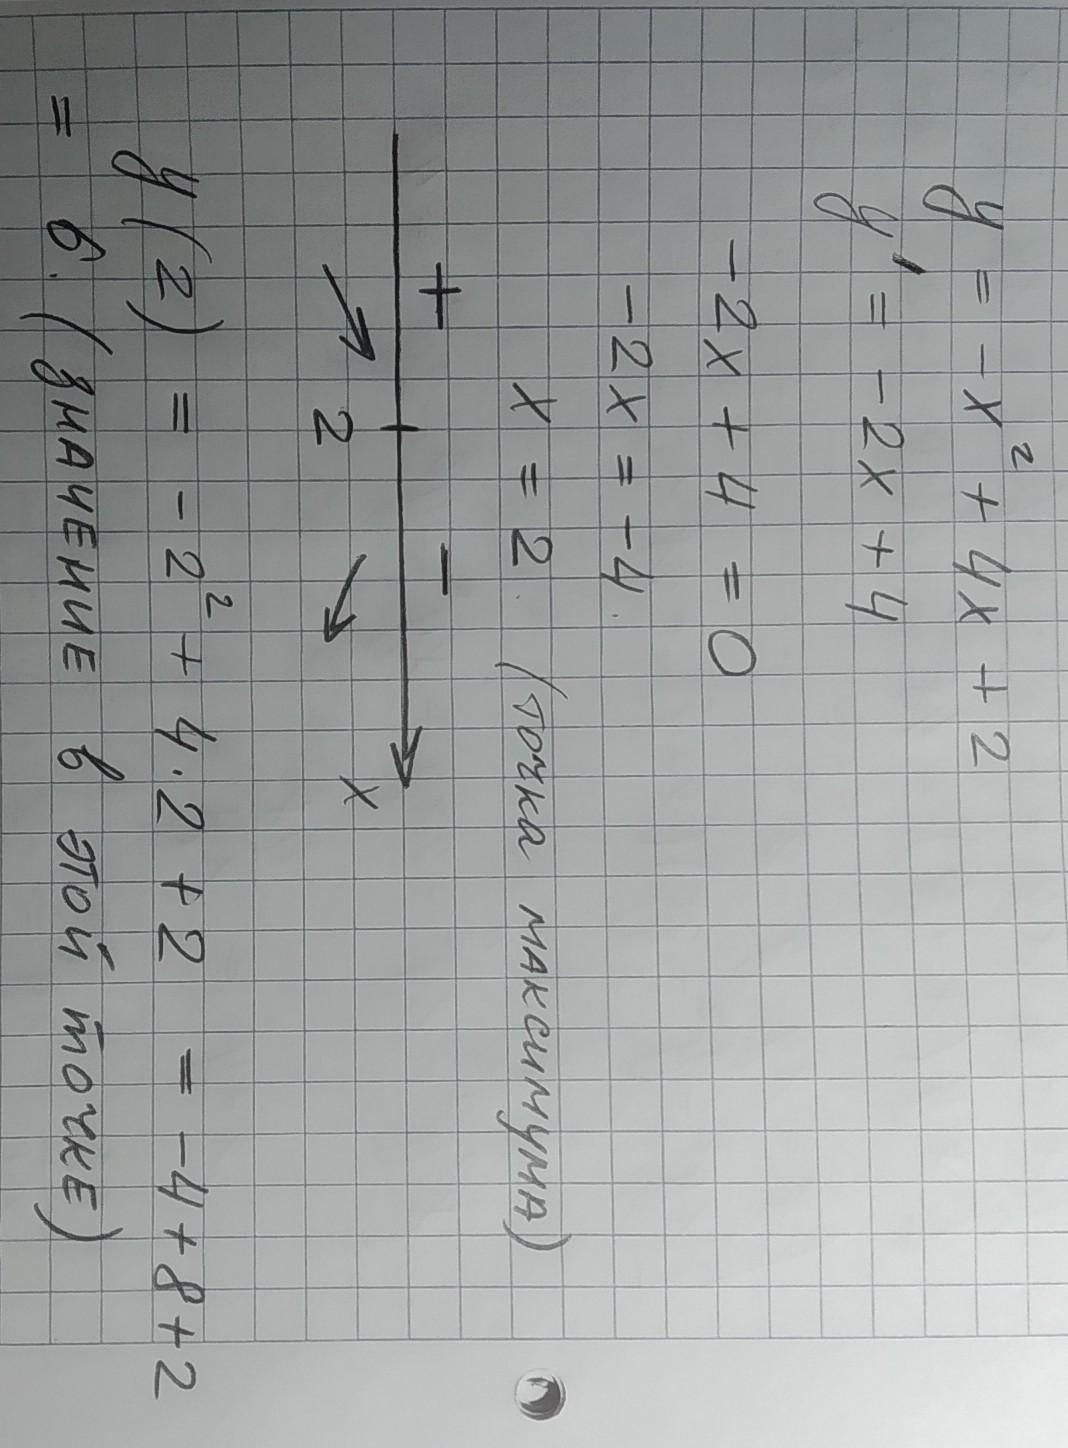 y = -x² + 4x + 2
y' = -2x + 4
-2x + 4 = 0
-2x = -4.
x = 2. (точка максимума)
+ -
2 x
y(2) = -2² + 4·2 + 2 = -4 + 8 + 2
= 6. (значение в этой точке)